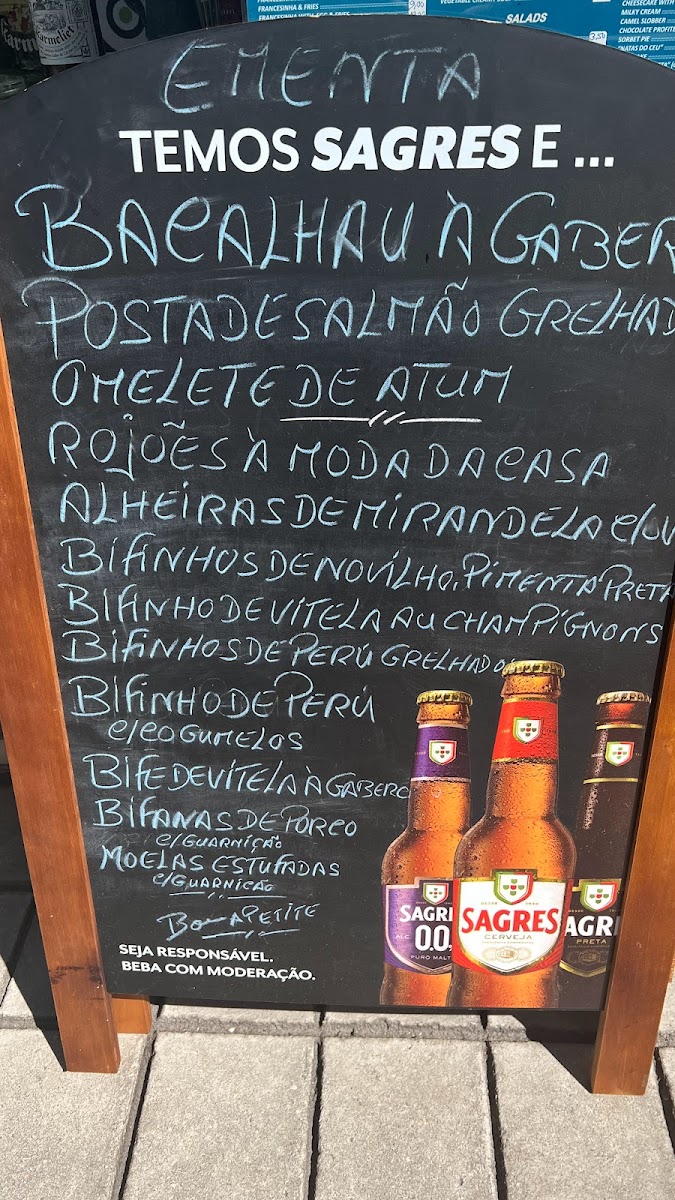 FRANCESINHA & FRIES
9,00
SALADS
3,50
CHEESECAKE WITH
MILKY CREAM
CAMEL SLOBBER
CHOCOLATE PROFITE
SORBET PIE
"NATAS DO CEU"
EMENTA
TEMOS SAGRES E ...
BACALHAU À GABER
POSTA DE SALMÃO GRELHAD
OMELETE DE ATUM
ROJÕES À MODA DA CASA
ALHEIRAS DE MIRANDELA C/OV
BIFINHOS DE NOVILHO, PIMENTA PRETA
BIFINHO DE VITELA AU CHAMPIGNONS
BIFINHOS DE PERÚ GRELHADO
BIFINHO DE PERÚ
C/COGUMELOS
BIFE DE VITELA À GABERO
BIFANAS DE PORCO
C/GUARNIÇÃO
MOELAS ESTUFADAS
C/GUARNIÇÃO
BOM APETITE
SEJA RESPONSÁVEL.
BEBA COM MODERAÇÃO.
SAGRE
0.0
PURO MALT
SAGRES
CERVEJA
AGR
PRETA